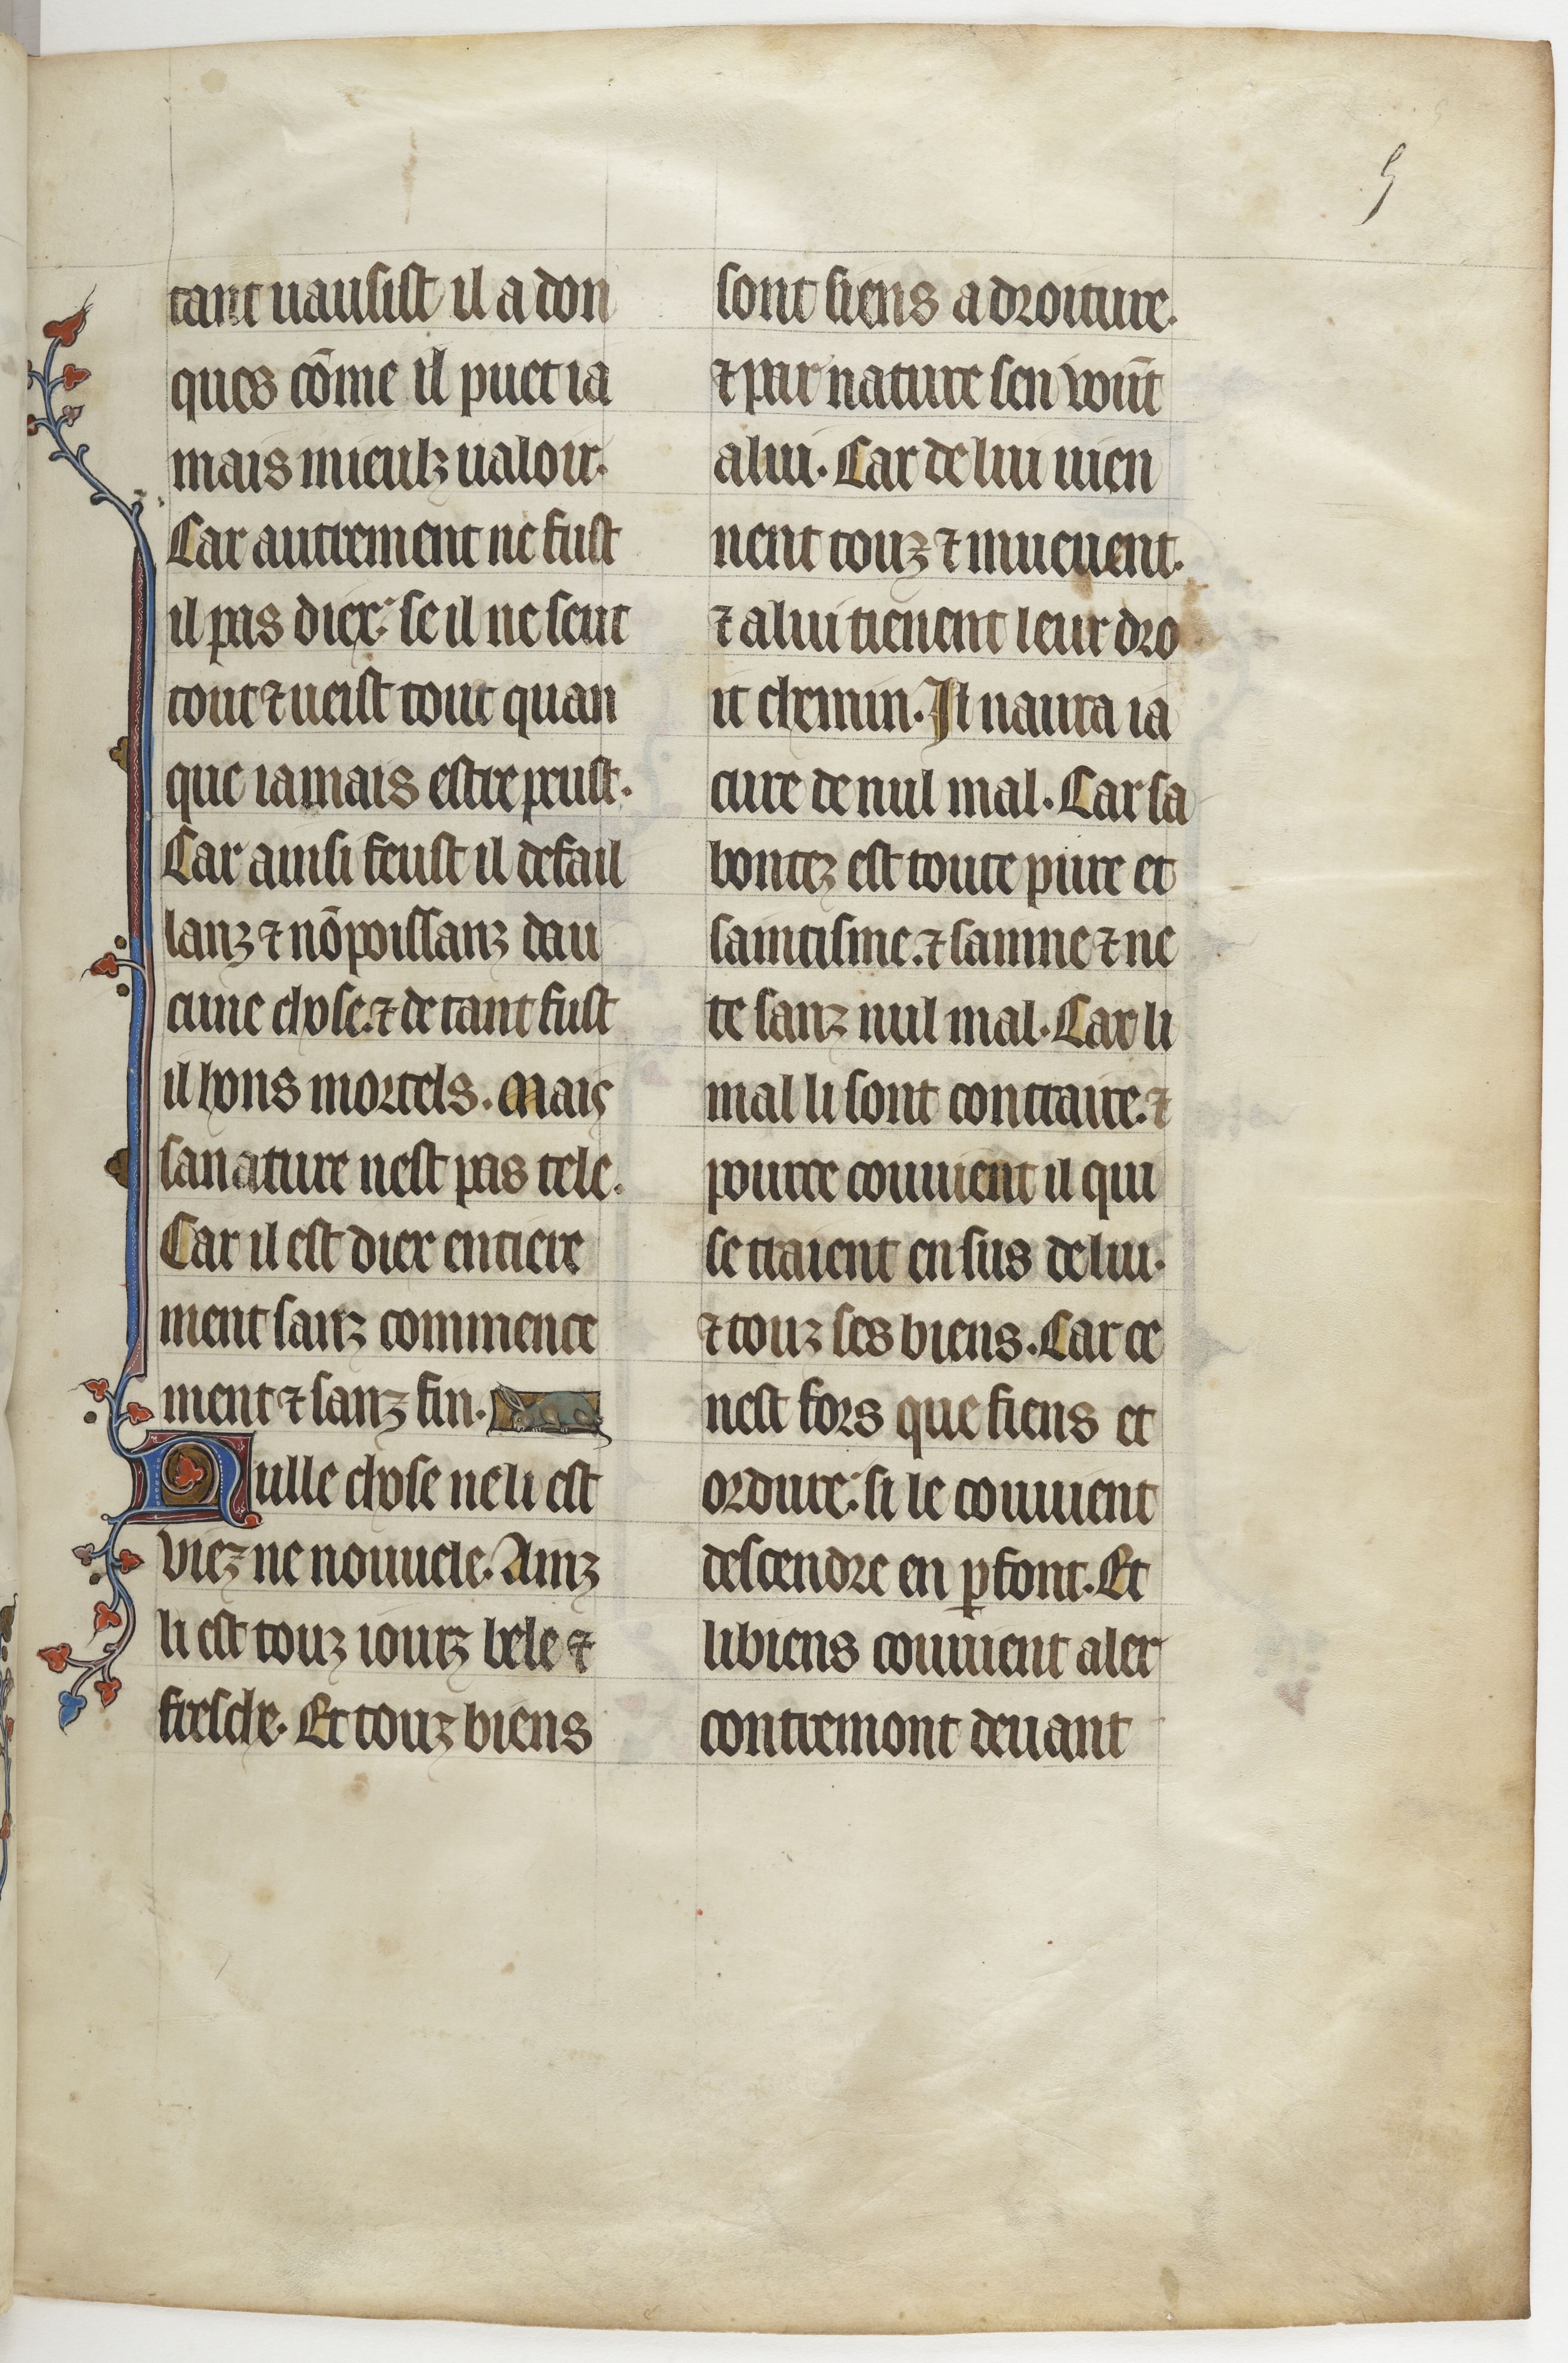 5
tant uausist il a don
ques cōme il puet ia
mais mieulz ualoir.
Car autrement ne fust
il pas diex. se il ne seut
tout ⁊ ueist tout quan
que iamais estre peust.
Car ainsi feust il defail
lanz ⁊ nō poissanz dau
cune chose. ⁊ de tant fust
il hons mortels. Mais
sa nature nest pas tele.
Car il est diex entiere
ment sanz commence
ment ⁊ sanz fin.
Nulle chose ne li est
viez ne nouuele. Ainz
li est touz iourz bele ⁊
fresche. Et touz biens
sont siens a droiture.
⁊ par nature sen vōnt
a lui. Car de lui uien
nent touz ⁊ mueuent.
⁊ a lui tienent leur dro
it chemin. Il naura ia
cure de nul mal. Car sa
bontez est toute pure et
saintisme. ⁊ sainne ⁊ ne
te sanz nul mal. Car li
mal li sont contraire. ⁊
pource couuient il qui
se traient en sus de lui.
⁊ touz ses biens. Car ce
nest fors que fiens et
ordure. si le couuient
descendre en ꝑfont. Et
li biens couuient aler
contremont deuant